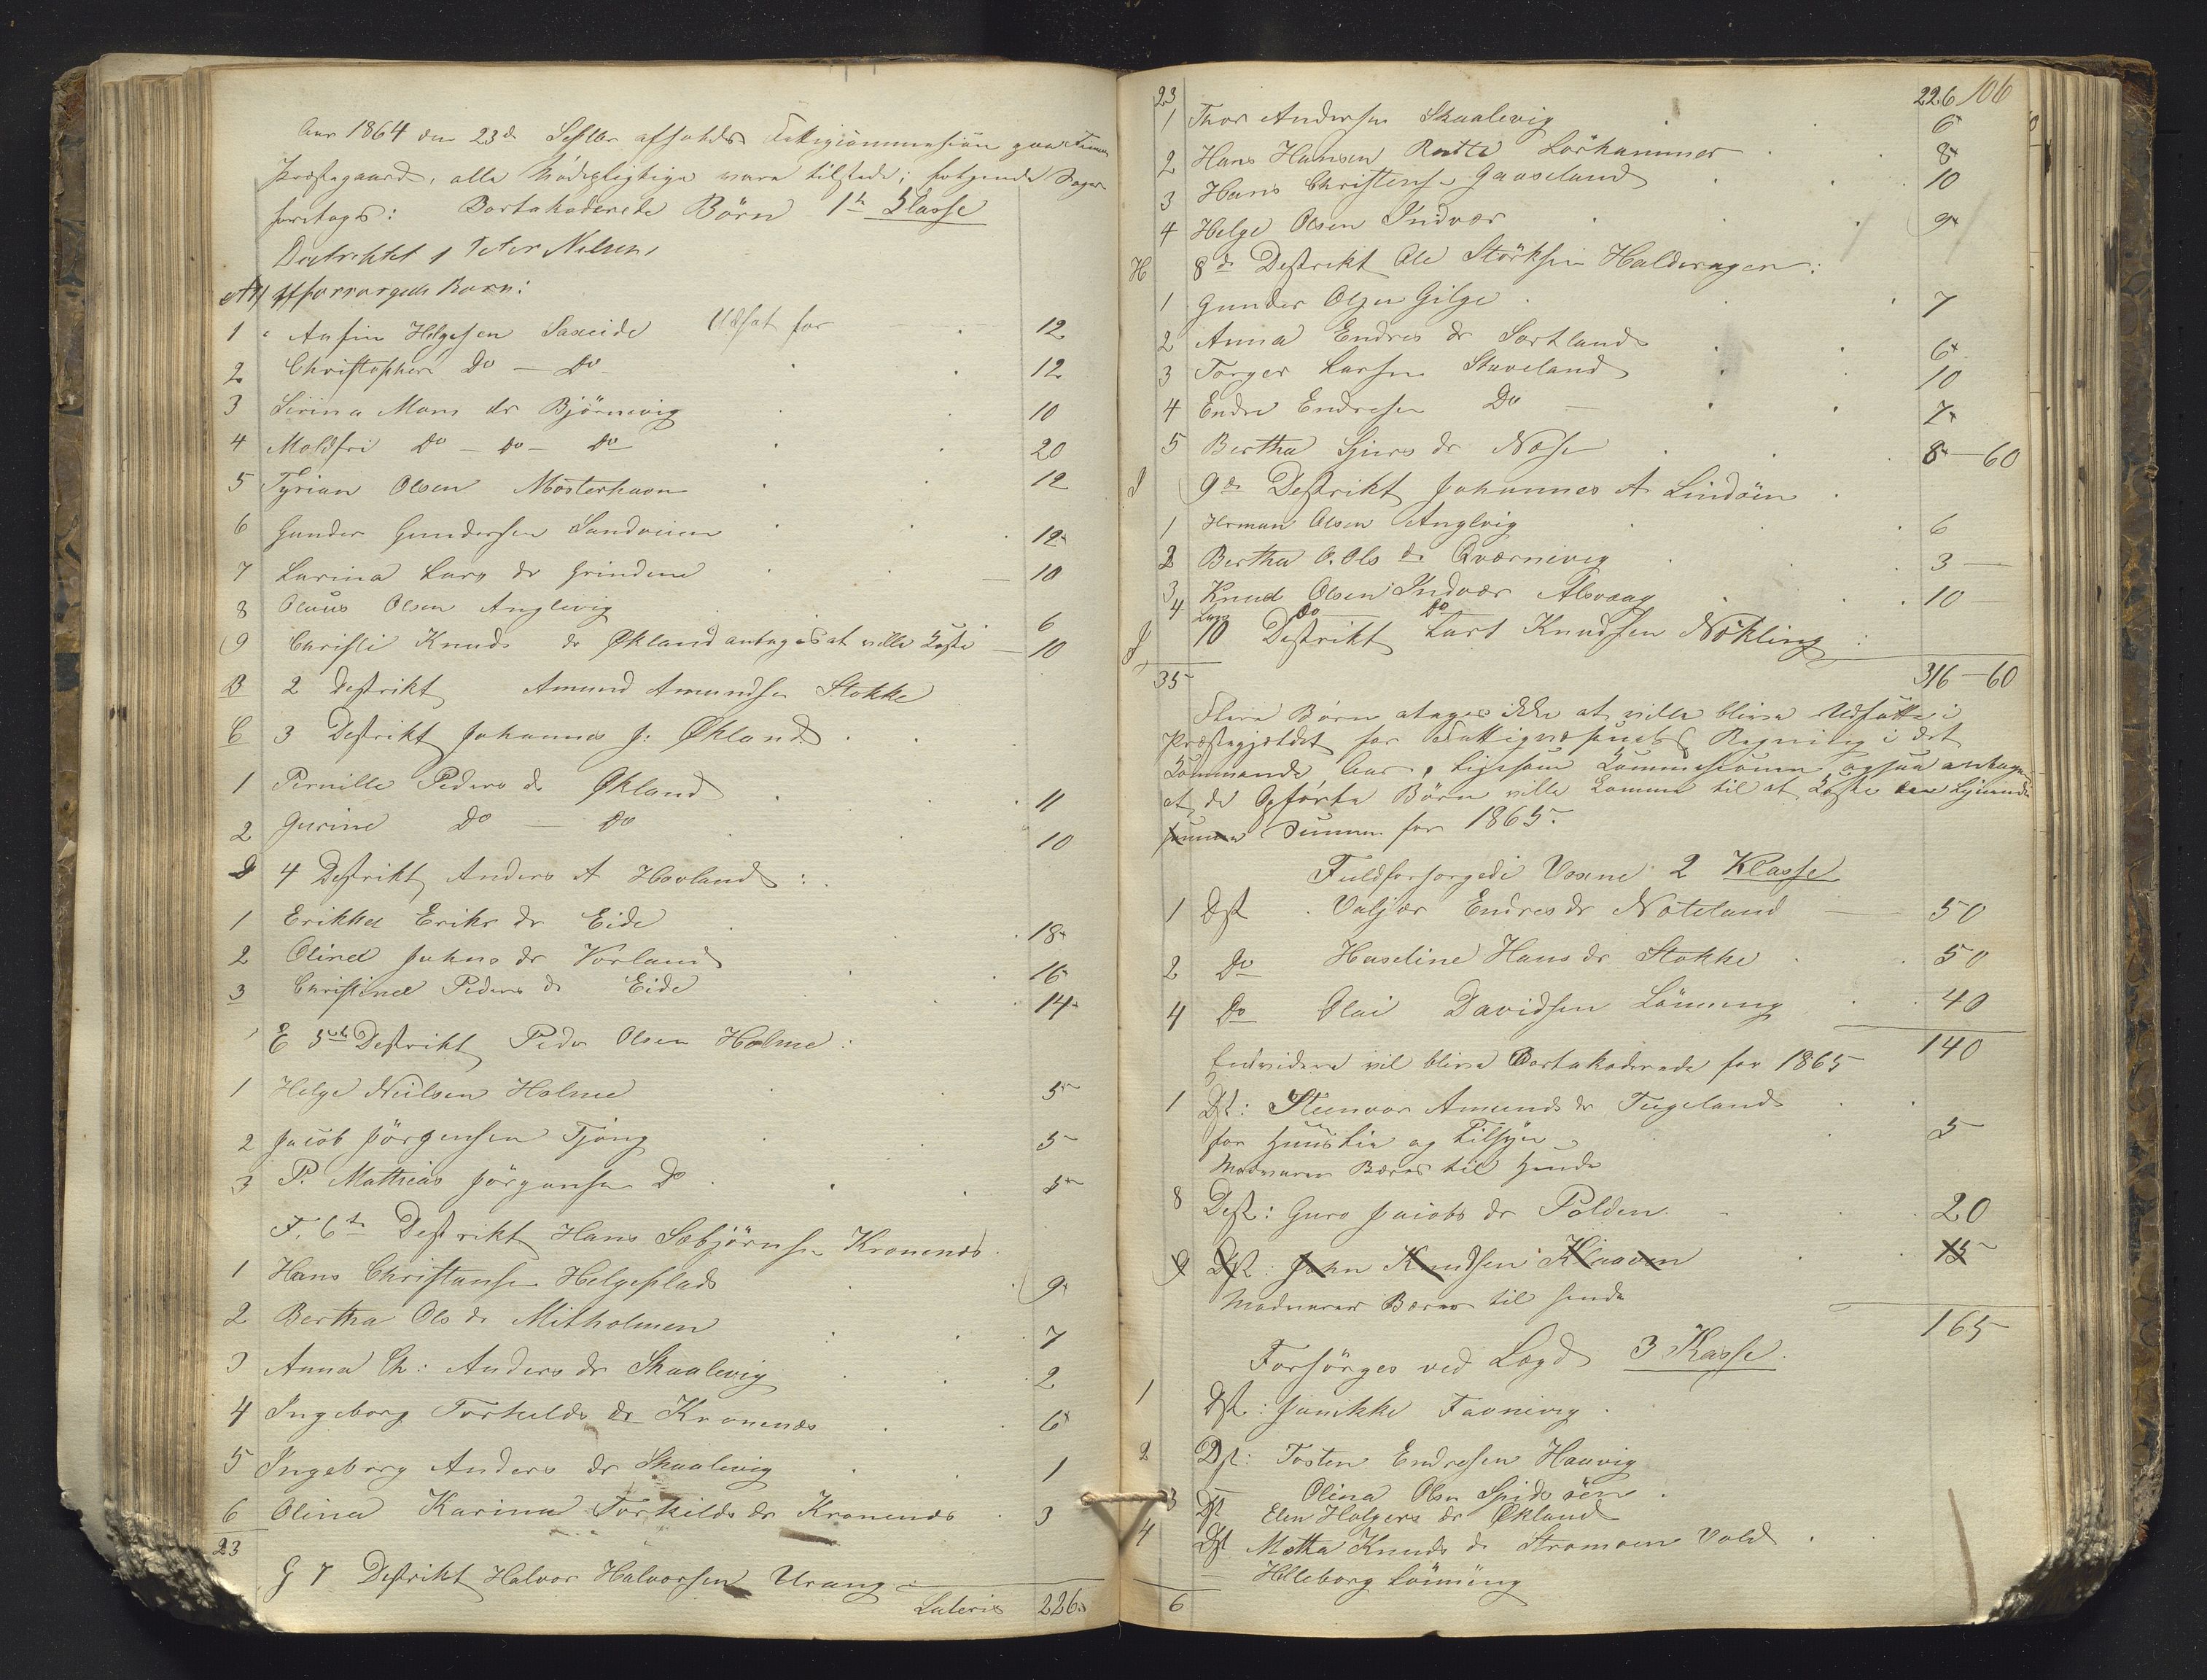 Aar 1864 den 23de Septbr afholdtes Fattigcommission paa Finnaas
Præstegaard, alle Mødepligtige vare tilstede; følgende Sager
foretoges: Bortakorderede Börn 1te Klasse
Destriktet 1 Peter Nilsen,
A) Afforsørgede Barn:
1 Anfin Helgesen Saxeide Udsat for 12
2 Christopher Do — Do 12
3 Sirina Mons dr Björnevig 10
4 Moldfri Do — Do — Do 20
5 Tyrian Olsen Mösterhavn 12
6 Gunder Gundersen Sandvigen 12
7 Larina Lars dr Grindene — 10
8 Olaus Olsen Anglevig 6
9 Christi Knuds dr Økland antages at ville Koste — 10
B 2 Destrikt Amund Amundsen Stokke
C 3 Destrikt Johannes J: Økland
1 Pernille Peders dr Økland 11
2 Gurine Do — Do 10
D 4 Destrikt Anders A Hovland :
1 Erikka Eriks dr Eide 18
2 Olina Johns dr Vorland 16
3 Christina Peders dr Eide 14
E 5te Destrikt Peder Olsen Holme :
1 Helge Neilsen Holme 5
2 Jacob Jörgensen Tjong 5
3 P. Mathias Jörgensen Do 5
F. 6te Destrikt Hans Sebjörnsen Kronenes
1 Hans Christensen Helgeplads 9
2 Bertha Ols dr Mitholmen 7
3 Anna Ch: Anders dr Skaalevig 2
4 Ingeborg Torkilds dr Kronenes 6
5 Ingeborg Anders dr Skaalevig 1
6 Olina Karina Torkilds dr Kronenes 3
23
G 7 Destrikt Halvor Halvorsen Urang
Lateris 226
23 226 106
1 Thor Andersen Skaalevig 6
2 Hans Hansen Rotte Lörhammer 8
3 Hans Christensen Gaaseland 10
4 Helge Olsen Indvær 9
H 8de Destrikt Ole Störksen Halderagen :
1 Gunder Olsen Gilge 7
2 Anna Endres dr Sortland 6
3 Torger Larsen Staveland 10
4 Endre Endresen Do — 7
5 Bertha Sjurs dr Næse 8 — 60
I 9de Destrikt Johannes A Lindöen
1 Herman Olsen Anglvig 6
2 Bertha O. Ols dr Qværnevig 3 —
3 Knud Olsen Indvær Alsvaag 10
4 Lars Do Do
J 10 Destrikt Lars Knudsen Nökling :
35 316 — 60
Flere Börn antages ikke at ville blive Udsatte i
Præstegjældet for Fattigvæsenets Regning i det
Kommende Aar, ligesom Kommissionen ogsaa antager
at de Opførte Börn ville komme til at koste en Lignende
Summa for 1865.
Fuldforsørgede Voxne 2 Klasse
1 Dst Valjer Endres dr Noteland — 50
2 Do Haseline Hans dr Stokke 50
4 Do Olai Davidsen Lönning 40
140
Endvidere vil blive Bortakorderede for 1865
1 Dst: Steenvor Amunds dr Tugeland
for Huuslie og Tilsyn 5
Madvarer Bæres til hende
8 Dest: Guro Jacobs dr Polden 20
9 Dst: John Knudsen Klaaven 15
Madvarer Bæres til hende
165
Forsörges ved Lægd 3 Klasse
1 Dst: Jonikke Tavnevig
2 Dst: Tosten Endresen Haavig
Olina Olsen Spidsöen
3 Dst Elen Holgers dr Økland
4 Dst Metta Knuds dr Stramoen Vold
Helleborg Lönning
6